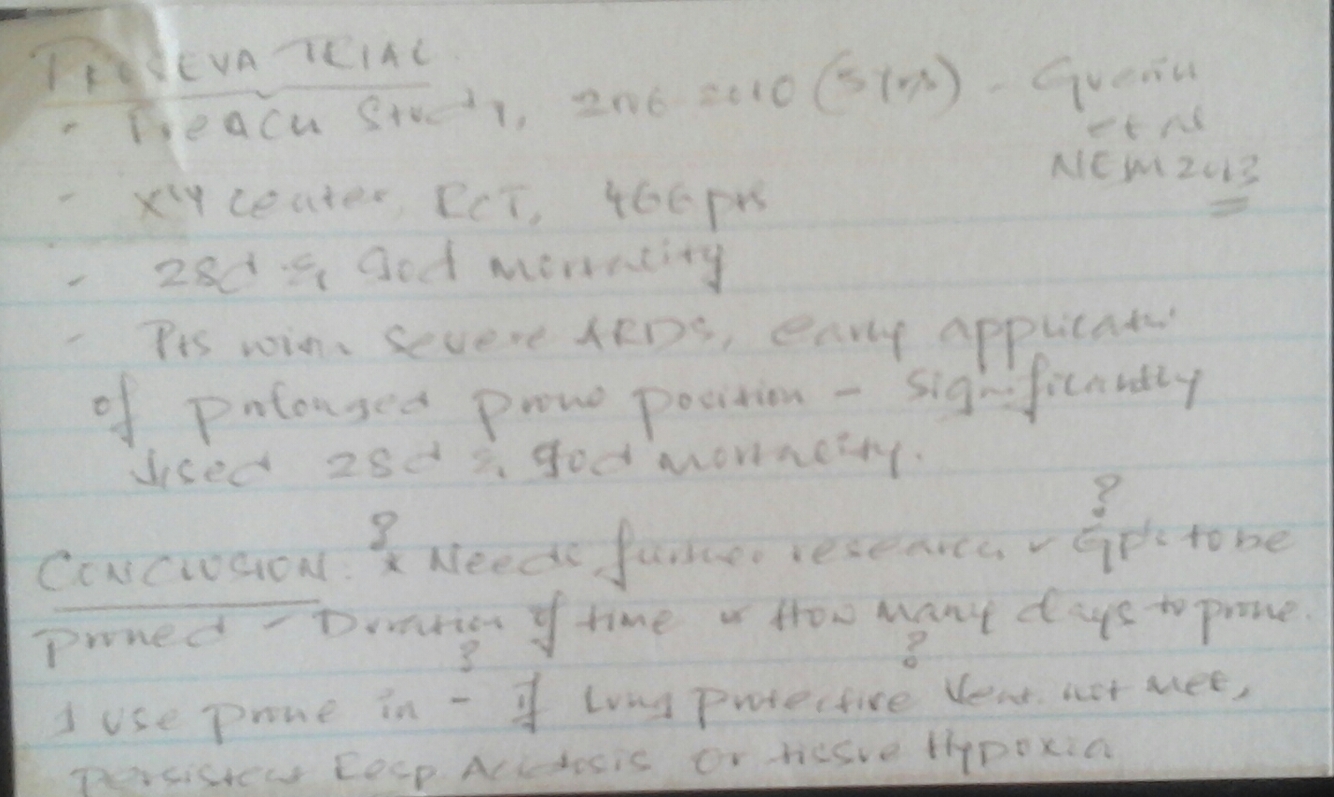 PROSEVA TRIAL
- French Study, 2006-2010 (5 yrs) - Guerin
et al
NEJM 2013
- center, RCT, 466 pts
- 28d & 90d mortality
- Pts with Severe ARDS, early applicati
of prolonged prone position - Significantly
↓sed 28d & 90d mortality.
? ?
CONCLUSION: * Needs further research - GP's to be
proned - Duration of time or How many days to prone.
? ?
I use prone in - if Lung protective Vent. not met,
persistent Resp. Acidosis or tissue Hypoxia